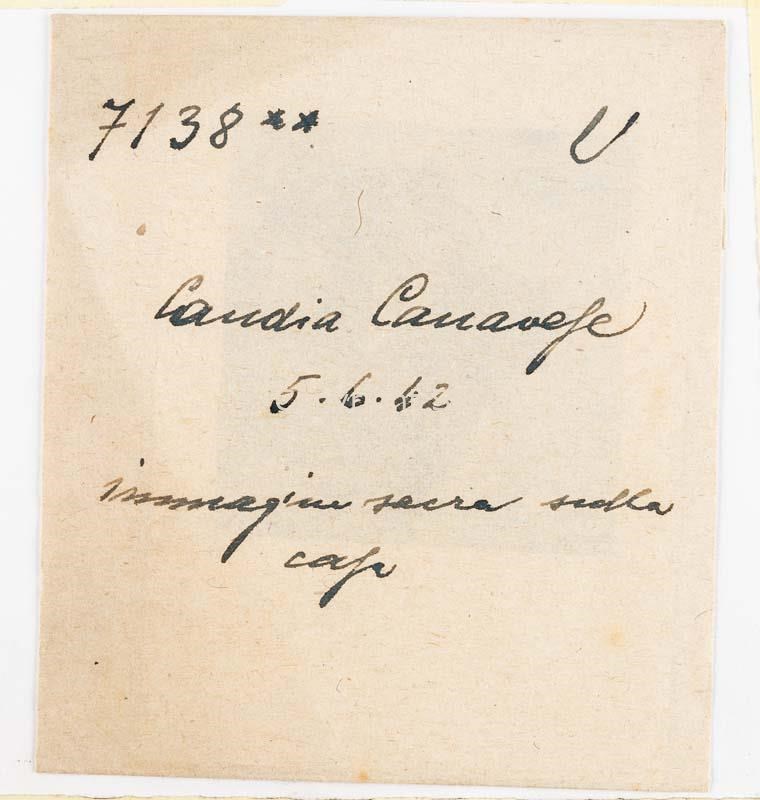 7138** U
Candia Canavese
5.6.42
immagine sacra sulla
casa